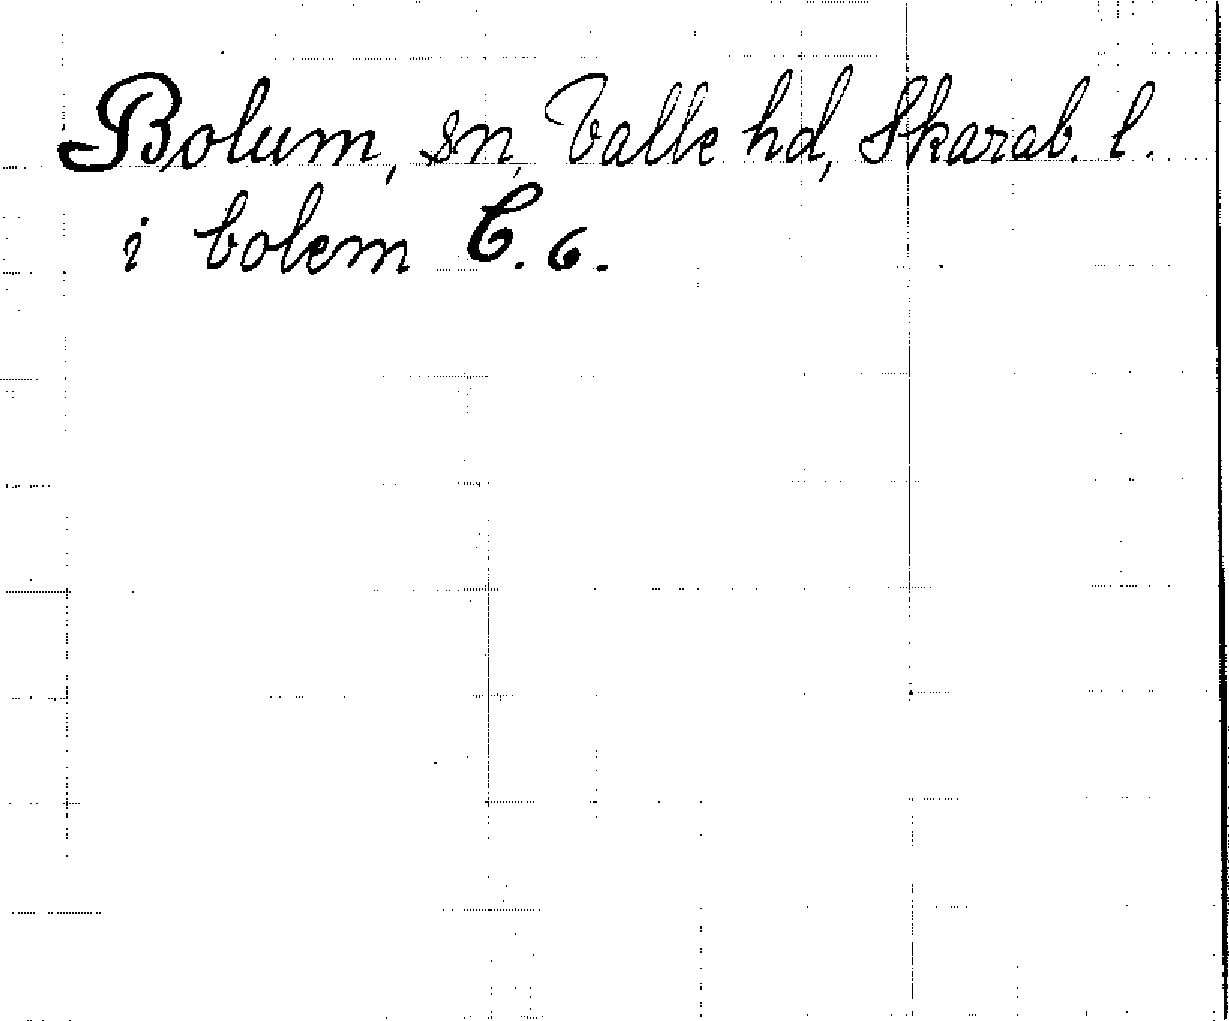 Bolum, sn, Valle hd, Skarab. l.
i bolem C. 6.